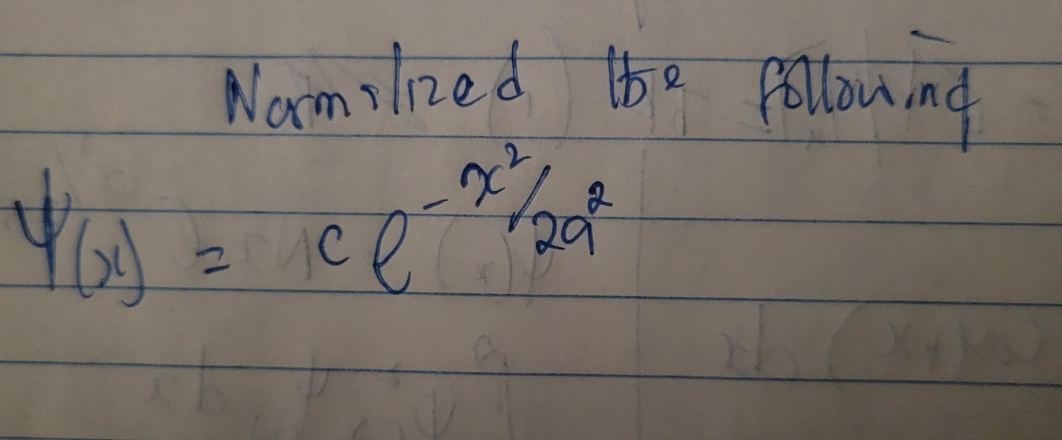 Normilized the following
Ψ(x) = c e^{-x²/2a²}